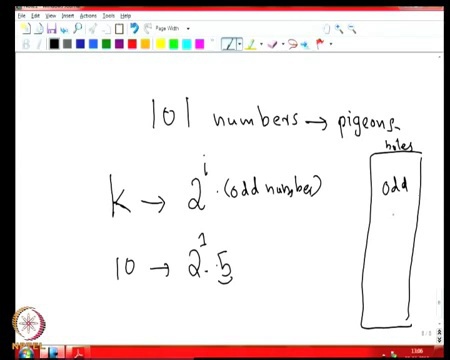 File Edit View Insert Actions Tools Help
Page Width
B I
101 numbers → pigeons
holes
K → 2^i · (odd number)
odd
10 → 2^1 · 5
NPTEL
13:06